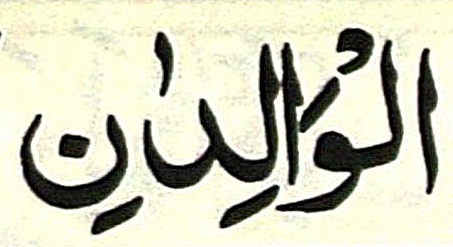 الْوَالِدٰنِ